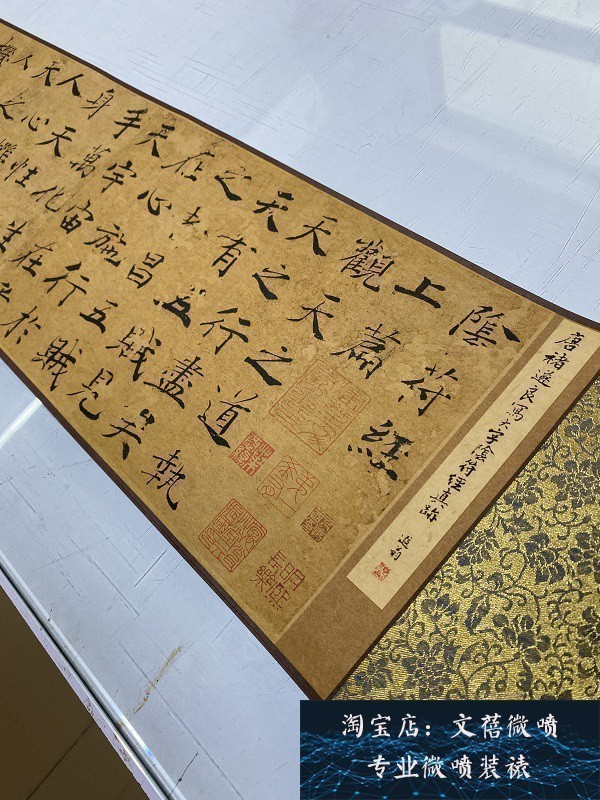 唐褚遂良寫大字陰符經真跡
陰符經
上篇
觀天之道執
天之行盡矣
天有五賊見
之者昌五賊
在心施行於
天宇宙在
手萬化生
身天性
人心
天之
人
淘宝店：文蓓微喷
专业微喷装裱